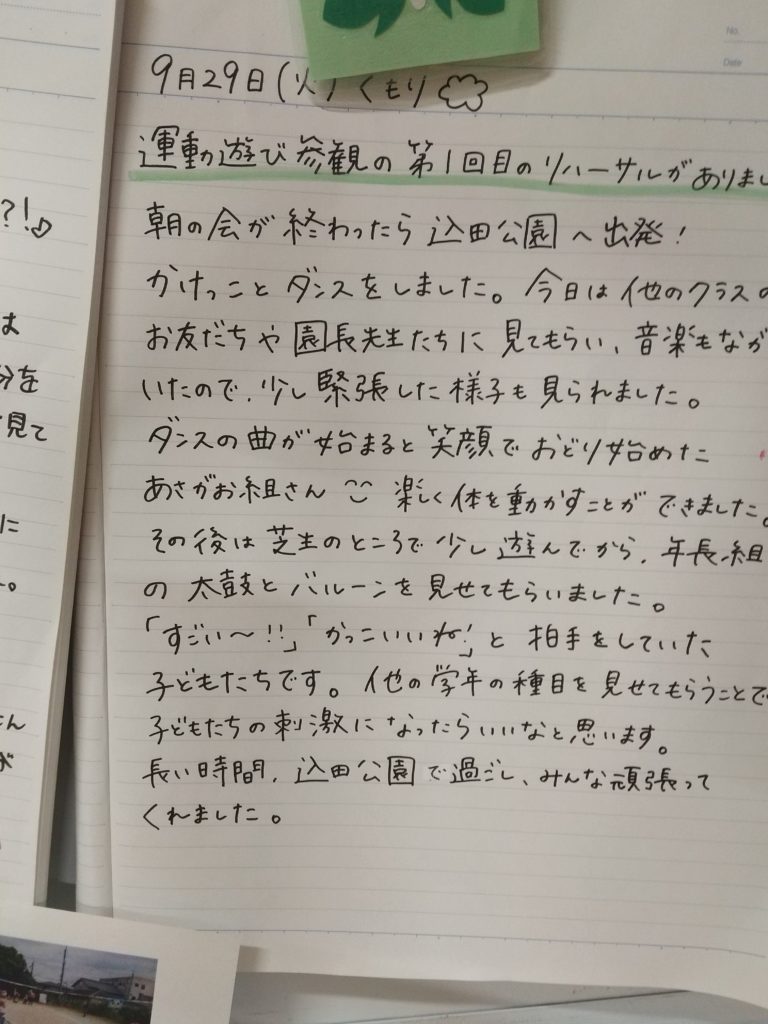 No.
Date
9月29日(火)くもり
運動遊び参観の第1回目のリハーサルがありまし
朝の会が終わったら込田公園へ出発!
かけっことダンスをしました。今日は他のクラスの
お友だちや園長先生たちに見てもらい、音楽もなが
いたので、少し緊張した様子も見られました。
ダンスの曲が始まると笑顔でおどり始めた
あさがお組さん 楽しく体を動かすことができました。
その後は芝生のところで少し遊んでから、年長組
の太鼓とバルーンを見せてもらいました。
「すごい〜!!」「かっこいいね!」と拍手をしていた
子どもたちです。他の学年の種目を見せてもらうことで
子どもたちの刺激になったらいいなと思います。
長い時間、込田公園で過ごし、みんな頑張って
くれました。
?!
は
分を
見て
に
さん
が